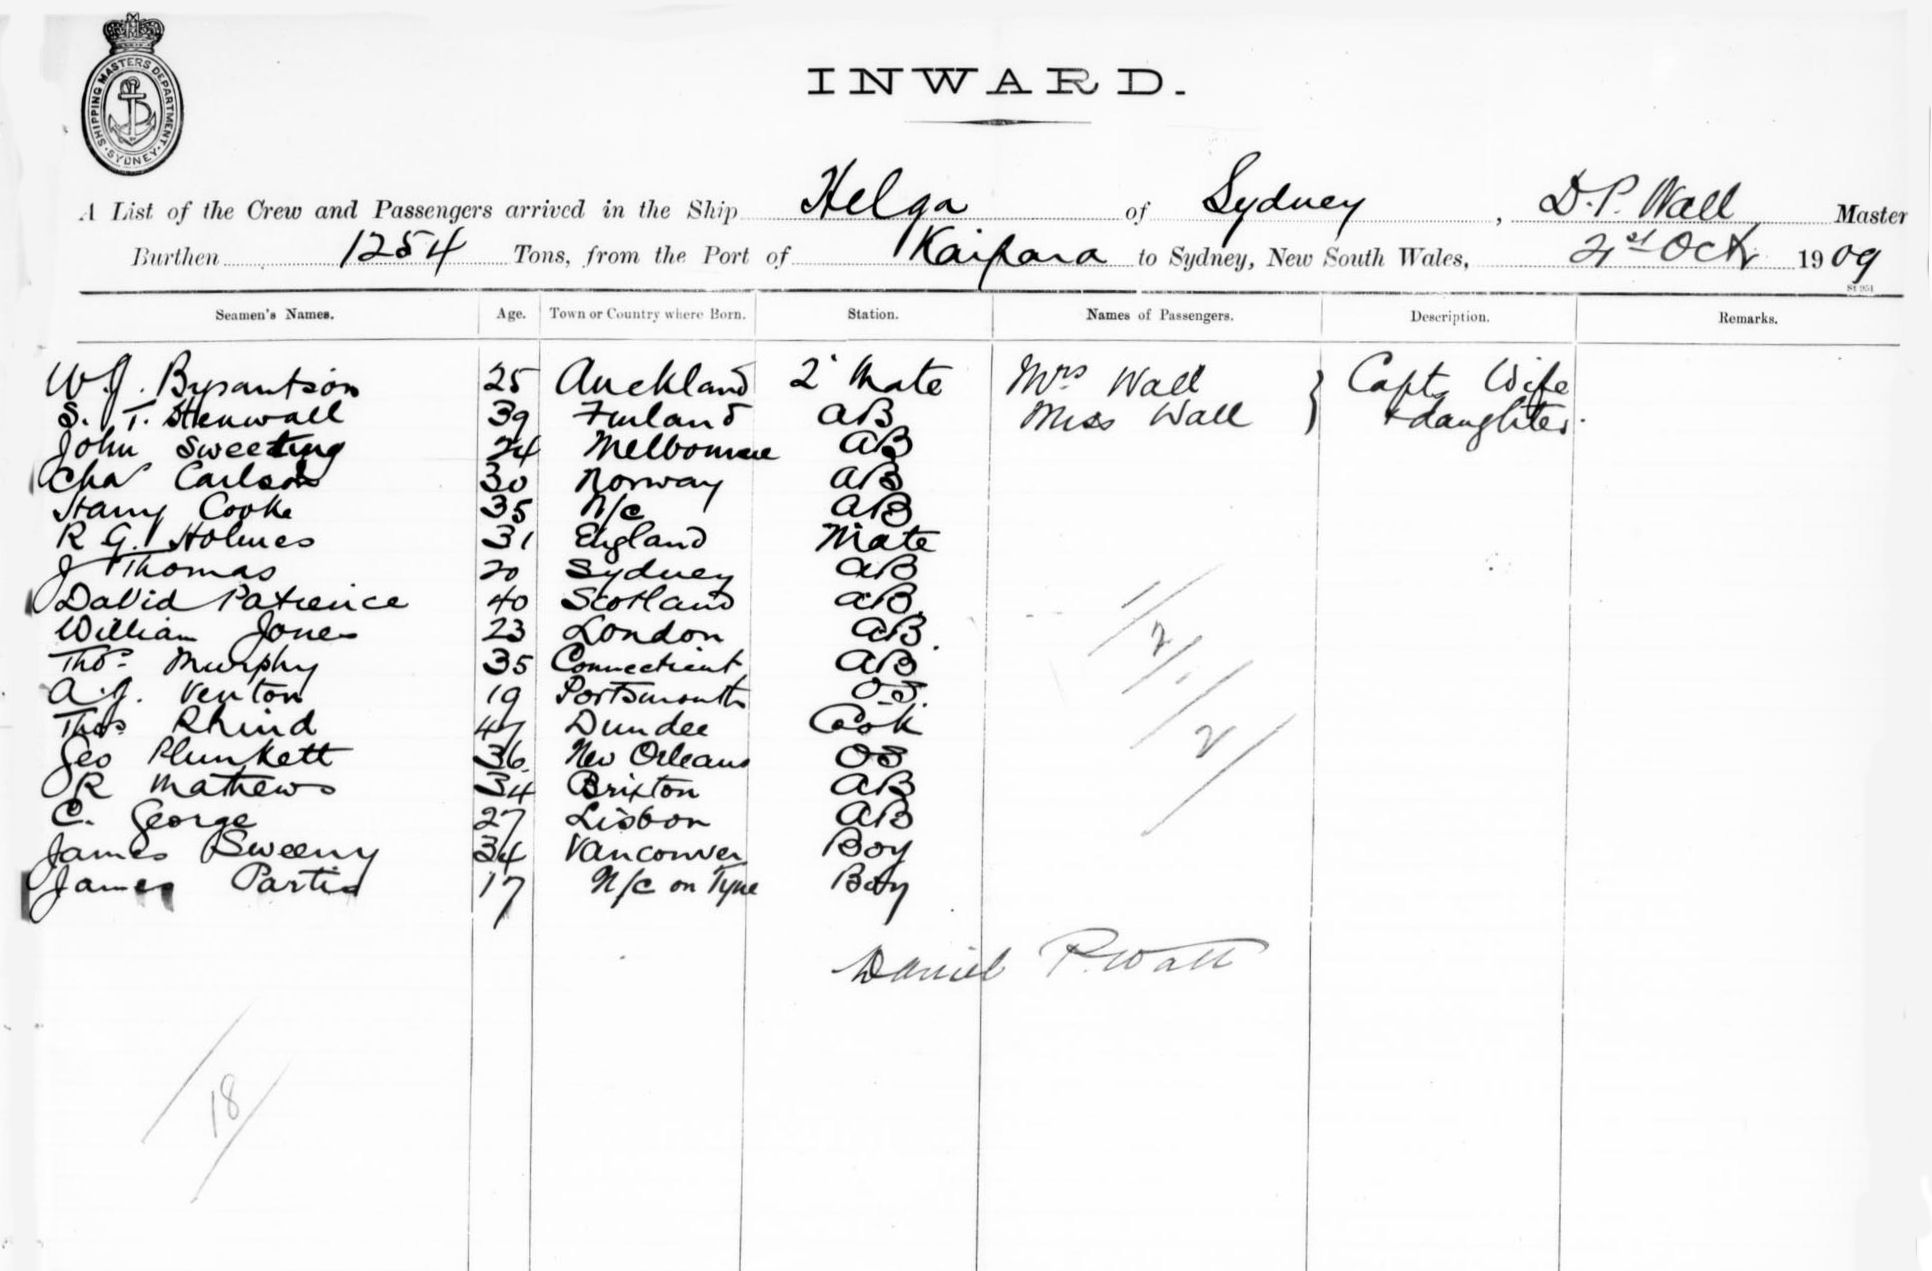 SHIPPING MASTERS DEPARTMENT. SYDNEY.
INWARD.
A List of the Crew and Passengers arrived in the Ship Helga of Sydney, D.P. Wall Master
Burthen 1254 Tons, from the Port of Kaipara to Sydney, New South Wales, 21st Oct 1909
St 951
Seamen's Names. Age. Town or Country where Born. Station. Names of Passengers. Description. Remarks.
W.J. Bysantson 25 Auckland 2' Mate Mrs Wall } Capts Wife
S. T. Stenwall 39 Finland AB Miss Wall } + daughter.
John Sweeting 24 Melbourne AB
Chas Carlson 30 Norway AB
Harry Cooke 35 N/c AB
R G. Holmes 31 England Mate
J Thomas 20 Sydney AB
David Patience 40 Scotland AB.
William Jones 23 London AB.
Thos. Murphy 35 Connecticut AB
A.J. Venton 19 Portsmouth O.S.
Thos Rhind 47 Dundee Cook
Geo Plunkett 36. New Orleans OS
R Mathews 34 Brixton AB
C. George 27 Lisbon AB
James Sweeny 34 Vancouver Boy
James Partis 17 N/c on Tyne Boy
/2/./2/
Daniel P. Wall
/18/